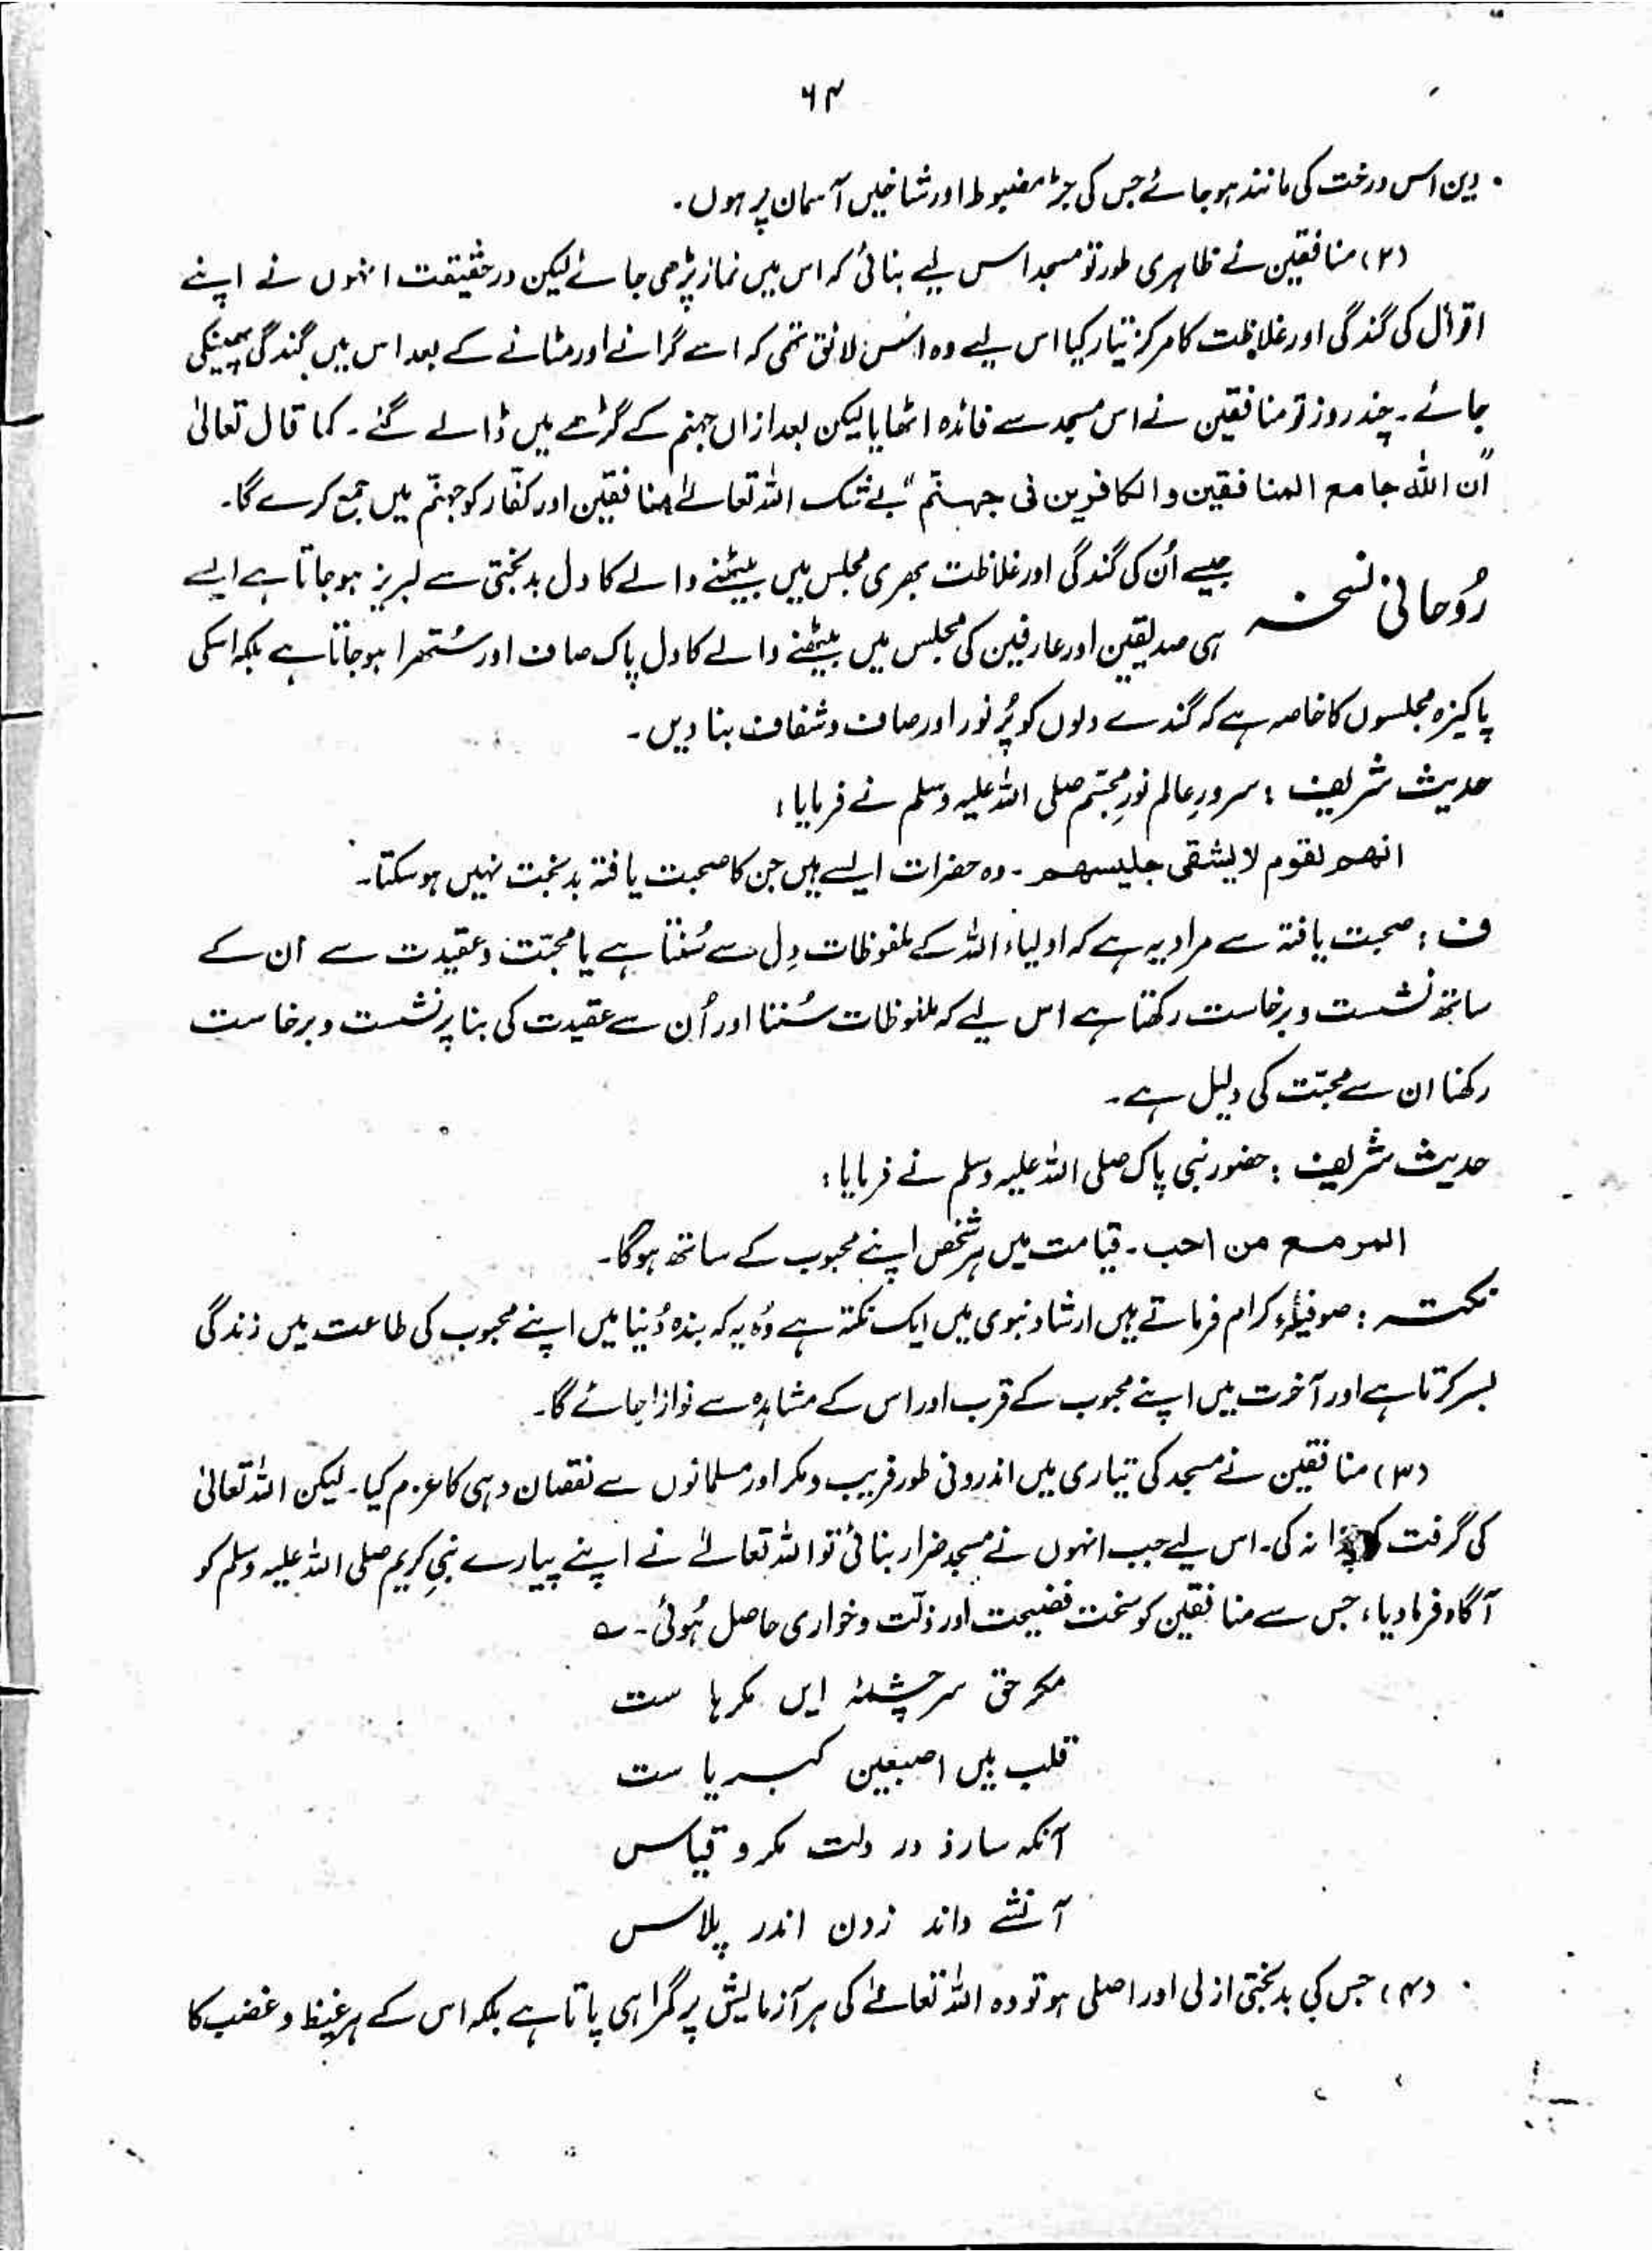 ۶۴
دین اس درخت کی مانند ہو جائے جس کی جڑ مضبوط اور شاخیں آسمان پر ہوں۔
(۲) منافقین نے ظاہری طور تو مسجد اس لیے بنائی کہ اس میں نماز پڑھی جائے لیکن درحقیقت انہوں نے اپنے
اقوال کی گندگی اور غلاظت کا مرکز تیار کیا اس لیے وہ اس لائق تھی کہ اسے گرانے اور مٹانے کے بعد اس میں گندگی پھینکی
جائے۔ چند روز تو منافقین نے اس مسجد سے فائدہ اٹھایا لیکن بعد ازاں جہنم کے گڑھے میں ڈالے گئے۔ کما قال تعالیٰ
"ان اللہ جامع المنافقین والکافرین فی جہنم" بے شک اللہ تعالےٰ منافقین اور کفّار کو جہنّم میں جمع کرے گا۔
رُوحانی نسخہ جیسے اُن کی گندگی اور غلاظت بھری مجلس میں بیٹھنے والے کا دل بدبختی سے لبریز ہو جاتا ہے ایسے
ہی صدیقین اور عارفین کی مجلس میں بیٹھنے والے کا دل پاک صاف اور سُتھرا ہو جاتا ہے بلکہ اسکی
پاکیزہ مجلسوں کا خاصہ ہے کہ گندے دلوں کو پُرنور اور صاف و شفاف بنا دیں۔
حدیث شریف : سرورِ عالم نورِ مجسّم صلی اللہ علیہ وسلم نے فرمایا :
انھم لقوم لا یشقی جلیسھم ۔ وہ حضرات ایسے ہیں جن کا صحبت یافتہ بدبخت نہیں ہو سکتا۔
ف : صحبت یافتہ سے مراد یہ ہے کہ اولیاء اللہ کے ملفوظات دِل سے سُنتا ہے یا محبّت و عقیدت سے ان کے
ساتھ نشست و برخاست رکھتا ہے اس لیے کہ ملفوظات سُننا اور اُن سے عقیدت کی بنا پر نشست و برخاست
رکھنا ان سے محبّت کی دلیل ہے۔
حدیث شریف : حضور نبی پاک صلی اللہ علیہ وسلم نے فرمایا :
المر مع من احب ۔ قیامت میں ہر شخص اپنے محبوب کے ساتھ ہو گا۔
نکتہ : صوفیاء کرام فرماتے ہیں ارشادِ نبوی میں ایک نکتہ ہے وُہ یہ کہ بندہ دُنیا میں اپنے محبوب کی طاعت میں زندگی
بسر کرتا ہے اور آخرت میں اپنے محبوب کے قرب اور اس کے مشاہدہ سے نوازا جائے گا۔
(۳) منافقین نے مسجد کی تیاری میں اندرونی طور فریب و مکر اور مسلمانوں سے نقصان دہی کا عزم کیا۔ لیکن اللہ تعالیٰ
کی گرفت کی نہ کی۔ اس لیے جب انہوں نے مسجد ضرار بنائی تو اللہ تعالےٰ نے اپنے پیارے نبیِ کریم صلی اللہ علیہ وسلم کو
آگاہ فرما دیا، جس سے منافقین کو سخت فضیحت اور ذلّت و خواری حاصل ہُوئی۔ ؎
مکر حق سرچشمۂ ایں مکرہا ست
قلب بیں اصبعین کبریا ست
آنکہ سازد در دلت مکر و قیاس
آتشے داند زدن اندر پلاس
(۴) جس کی بدبختی ازلی اور اصلی ہو تو وہ اللہ تعالےٰ کی ہر آزمایش پر گمراہی پاتا ہے بلکہ اس کے ہر غیظ و غضب کا